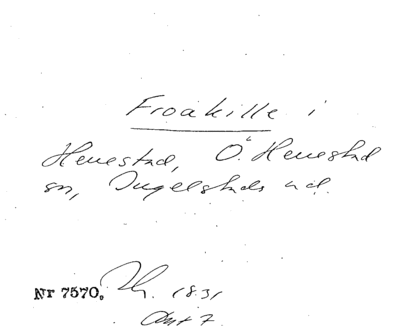 Froakille i
Herrestad, Ö. Herrestad
sn, Ingelstads hd.
Nr 7570. 1831
Akt 7